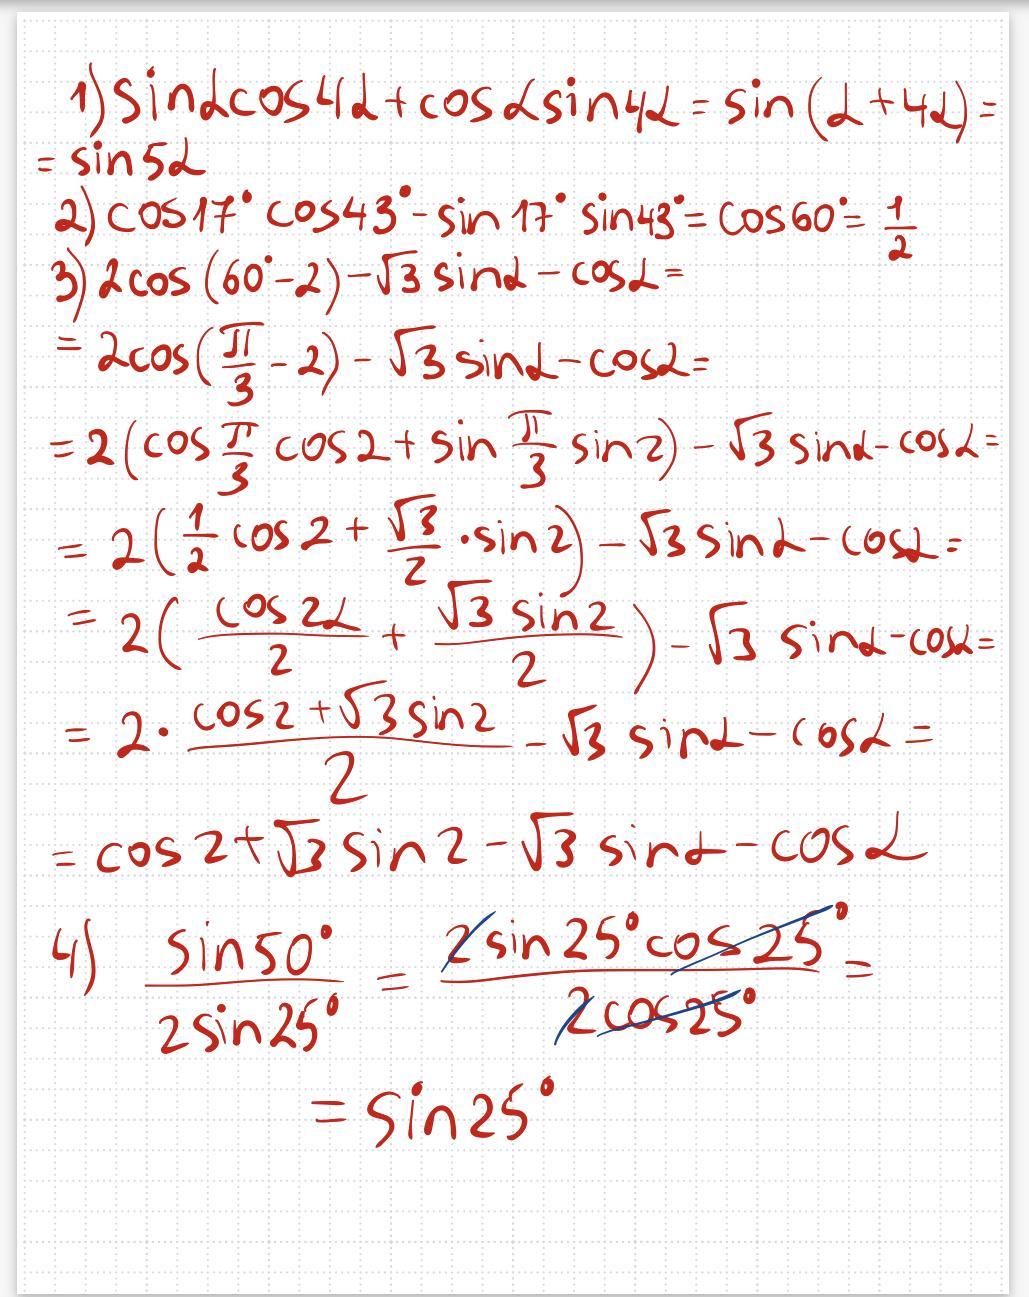 1) sinαcos4α + cosαsin4α = sin(α + 4α) =
= sin5α
2) cos17° cos43° - sin17° sin43° = cos60° = 1/2
3) 2cos(60° - 2) - √3 sinα - cosα =
= 2cos(π/3 - 2) - √3 sinα - cosα =
= 2(cos π/3 cos2 + sin π/3 sin2) - √3 sinα - cosα =
= 2(1/2 cos2 + √3/2 · sin2) - √3 sinα - cosα =
= 2(cos2α/2 + √3 sin2/2) - √3 sinα - cosα =
= 2 · (cos2 + √3 sin2)/2 - √3 sinα - cosα =
= cos2 + √3 sin2 - √3 sinα - cosα
4) sin50°/2sin25° = 2sin25°cos25°/2cos25° =
= sin25°